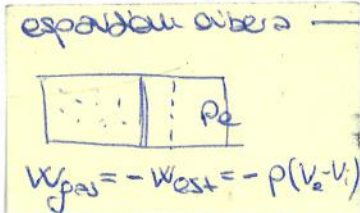 espansione libera
Pe
Wgas = - West = - p(V2-Vi)